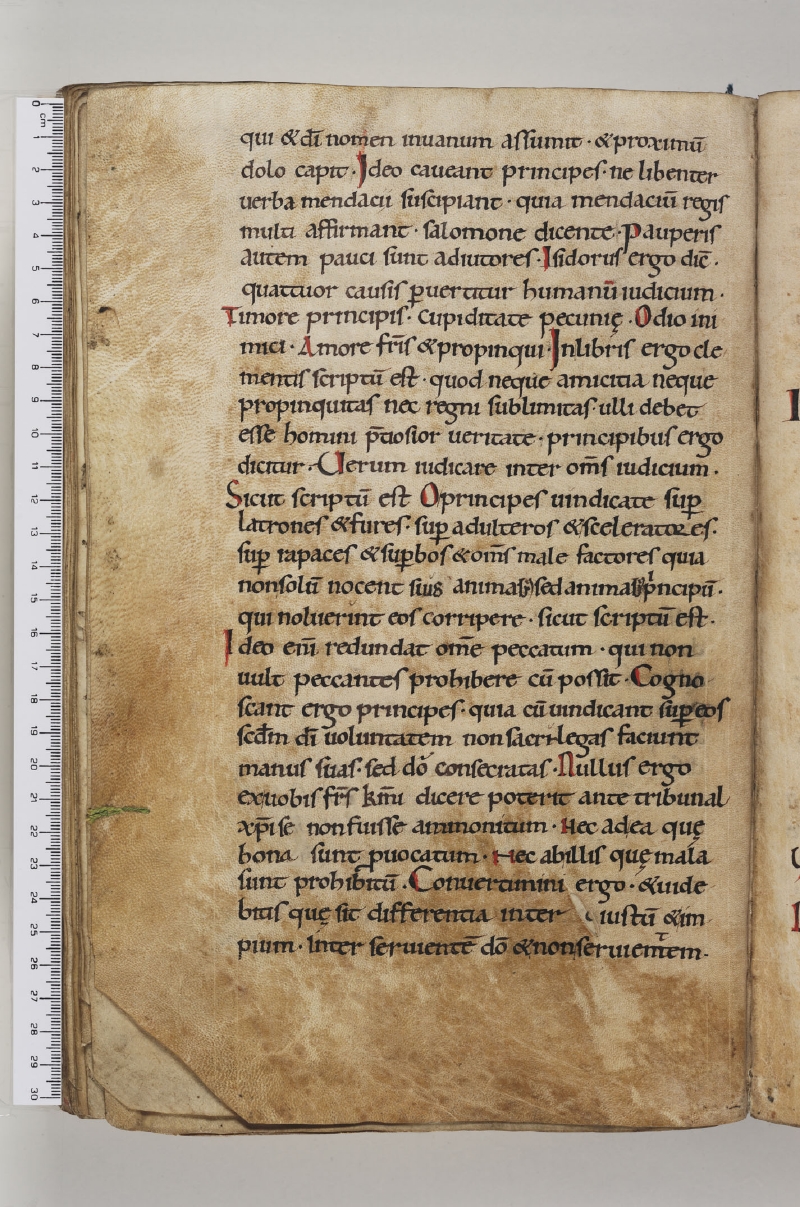 qui &dī nomen inuanum assumit · &proximū
dolo capit · Ideo caueant principes · ne libenter
uerba mendacii suscipiant · quia mendaciū regis
multi affirmant · salomone dicente · Pauperis
autem pauci sunt adiutores · Isidorus ergo diē ·
quattuor causis ꝑuertitur humanū iudicium ·
Timore principis · cupiditate pecunię · Odio ini
mici · Amore fr̄is &propinqui · Inlibris ergo cle
mentis scriptū est · quod neque amicitia neque
propinquitas nec regni sublimitas · ulli debet
esse homini p̄tiosior ueritate · principibus ergo
dicitur · Uerum iudicare inter om̄s iudicium ·
Sicut scriptū est O principes uindicate suꝑ
latrones &fures · suꝑ adulteros &sceleratores ·
suꝑ rapaces &suꝑbos &om̄s male factores quia
nonsolū nocent suis animas sedanimas pͥncipū ·
qui noluerint eos corripere · sicut scriptū est ·
Ideo eni̅ redundat om̄e peccatum · qui non
uult peccantes prohibere cū possit · Cogno
scant ergo principes · quia cū uindicant suꝑ eos
scd̄m dī uoluntatem non sacrilegas faciunt
manus suas · sed dō consecratas · Nullus ergo
exuobis fr̄s km̄i dicere poterit ante tribunal
xp̄i se nonfuisse ammonitum · Nec adea quę
bona sunt ꝓuocatum · Nec abillis quę mala
sunt prohibitū · Conuertimini ergo · &uide
bitis quę sit differentia inter iustū &im
pium · Inter seruientē dō &nonseruientem ·
1